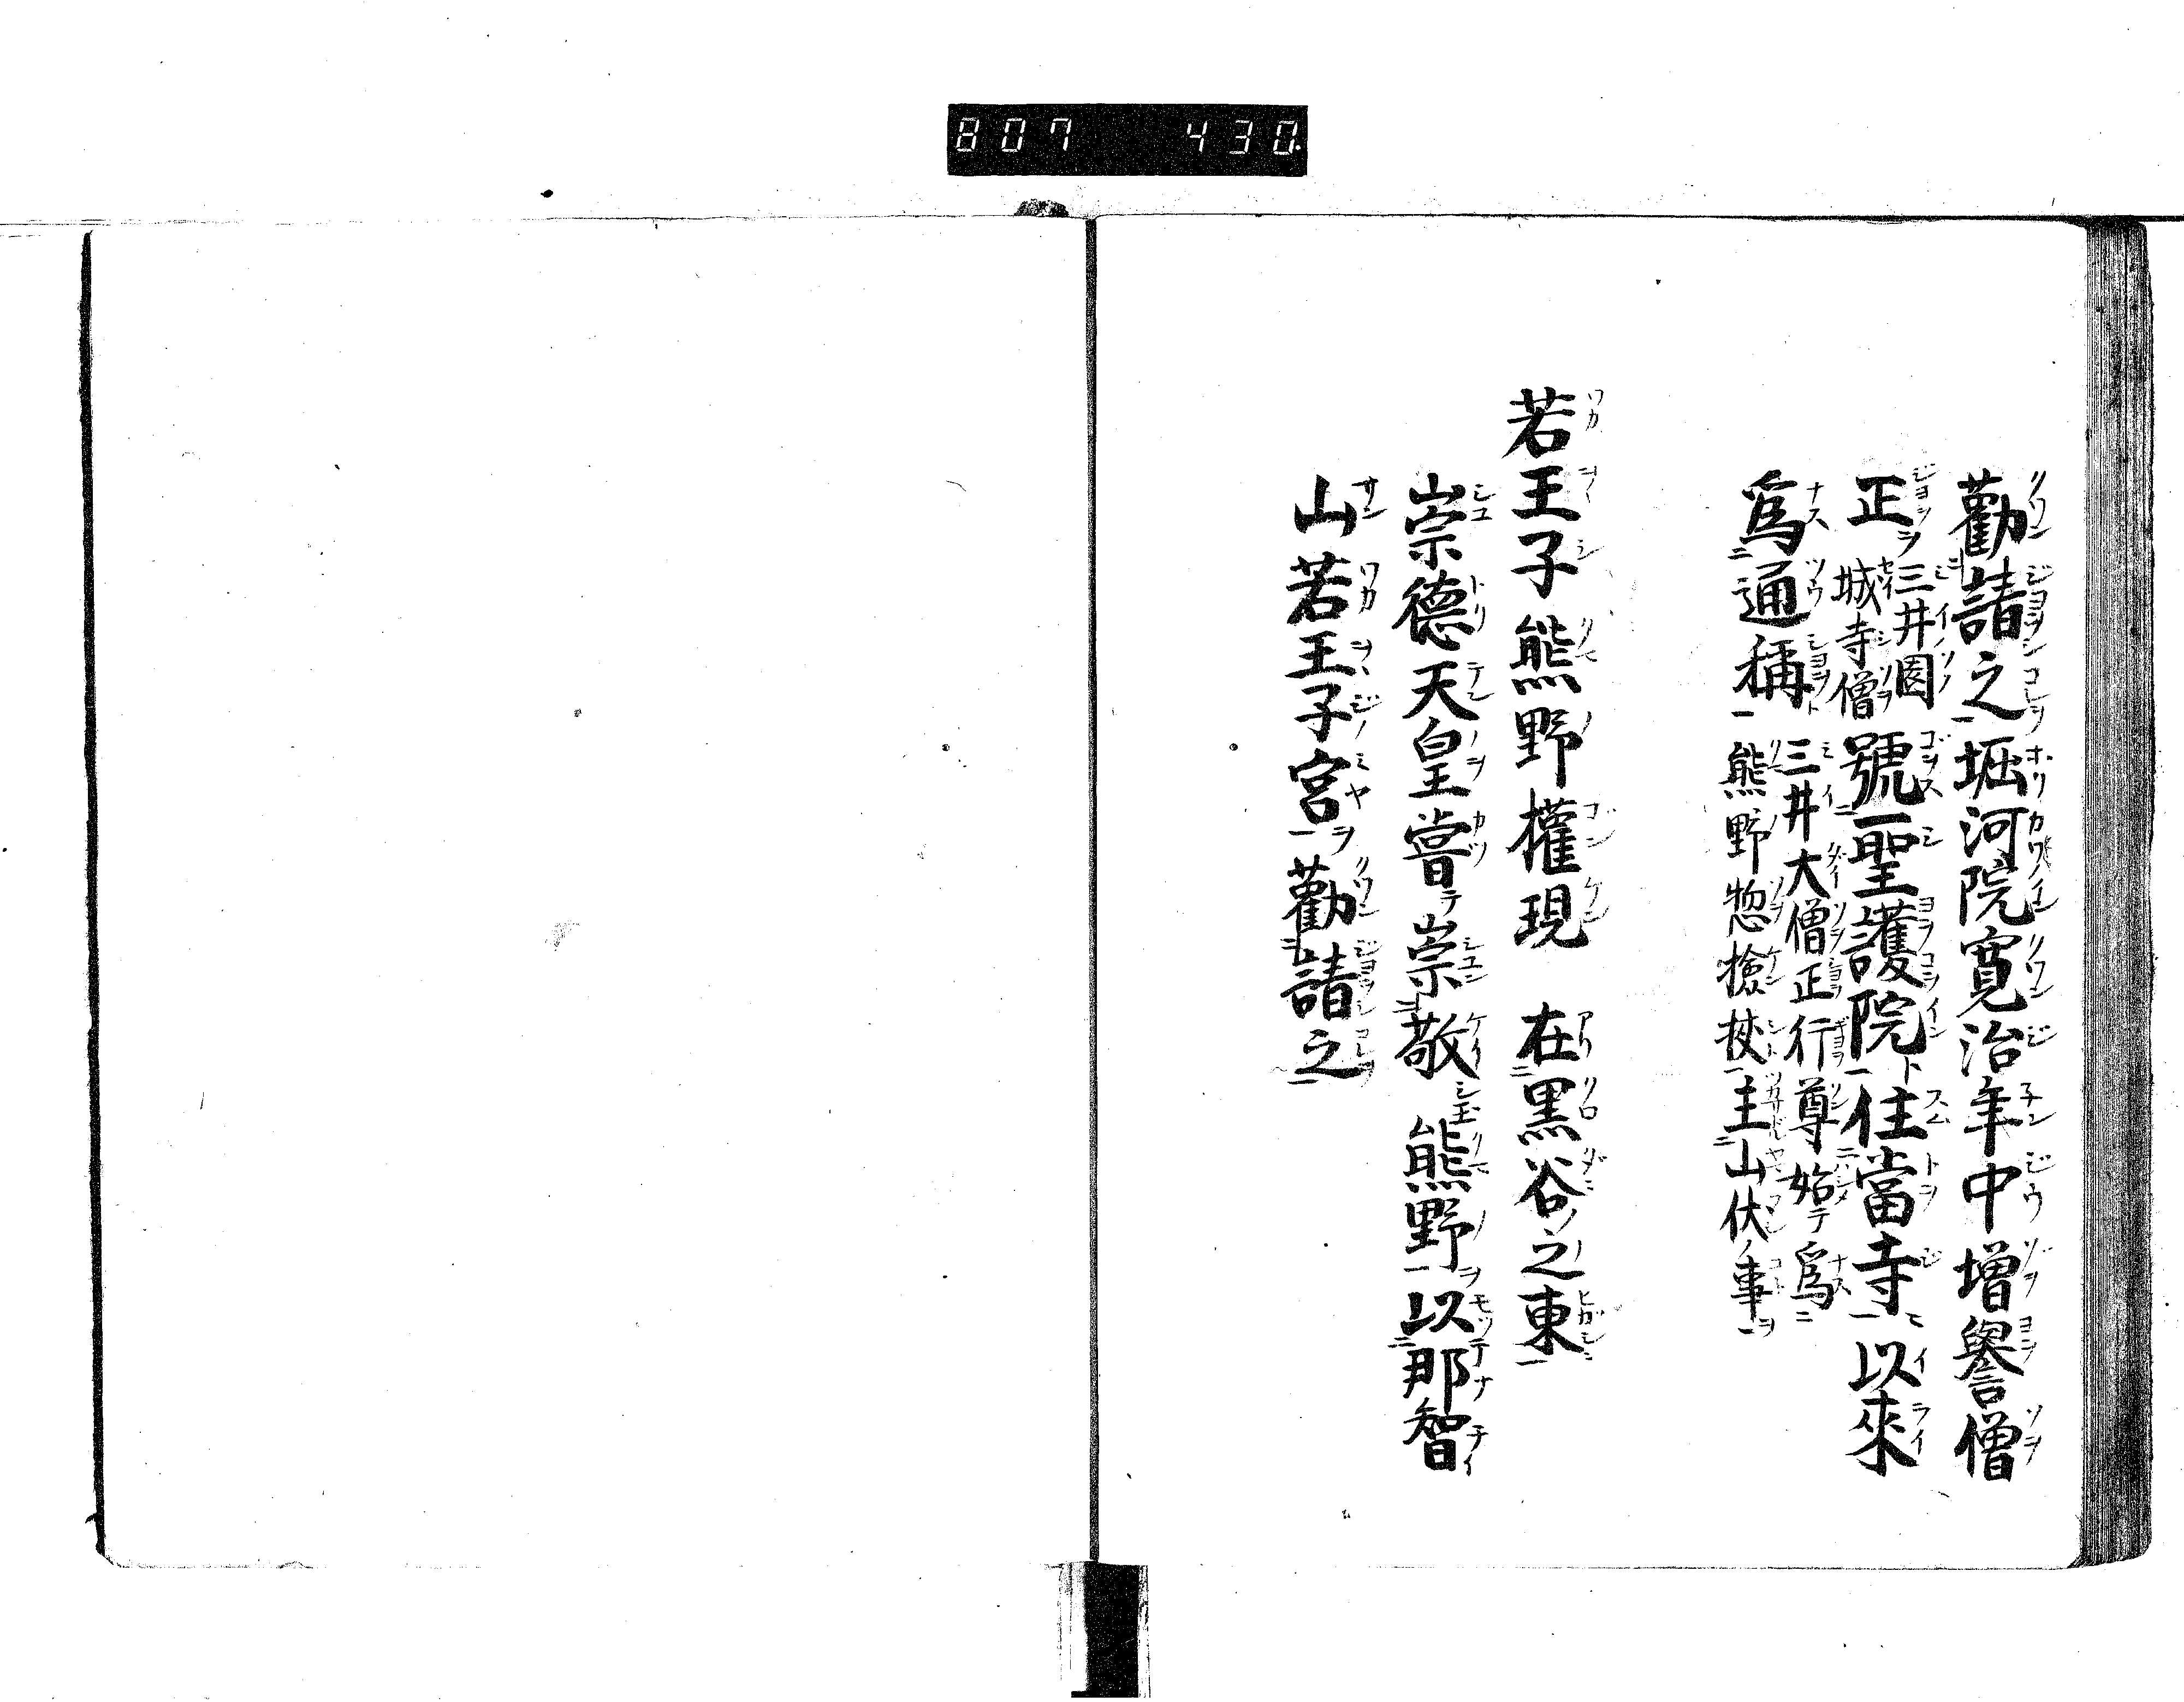 807 430
勸請之堀河院寛治年中増譽僧
正三井園城寺僧號聖護院住當寺以來
爲通稱三井大僧正行尊始爲熊野惣撿挍主山伏事
若王子熊野權現 在黒谷之東
崇德天皇嘗崇敬熊野以那智
山若王子宮勸請之